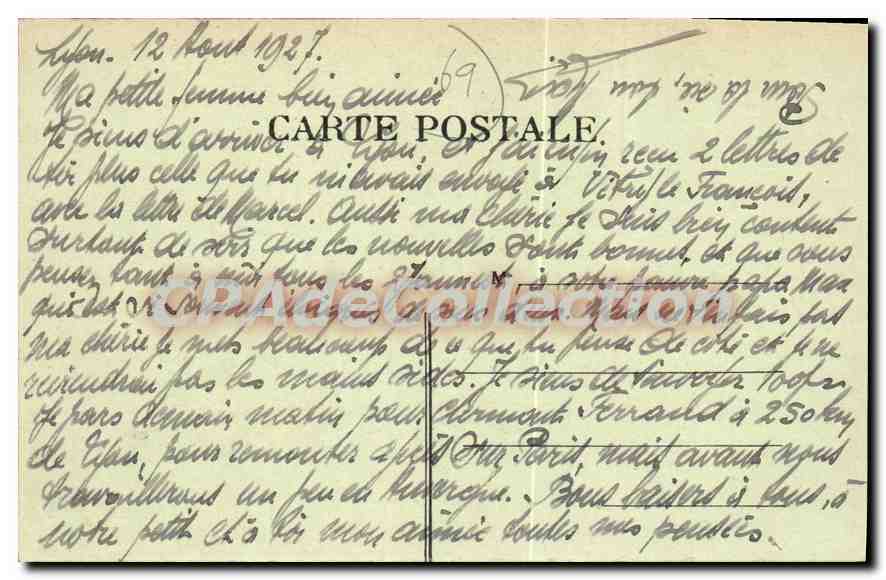 Lyon. 12 Aout 1927.
69
Ma petite femme bien aimée
CARTE POSTALE
Je viens d'arriver à Lyon, et j'ai enfin recu 2 lettres de
plus celle que tu m'avais envoyé à Vitry le François,
avec la lettre de Marcel. Aussi ma chérie je suis bien content
surtout de voir que les nouvelles sont bonnes, et que vous
pensez tant à tous les 2 à votre pauvre papa Max
qui est si
CPAdeCollection.com
ma chérie je mets beaucoup de ce que tu pense de côté et je ne
reviendrai pas les mains vides. Je viens de t'envoyer
Je pars demain matin pour Clermont Ferrand à 250 km
de Lyon, pour remonter après sur Paris, mais avant nous
travaillerons un peu en Auvergne. Bons baisers à tous, à
notre petit et à toi mon aimée toutes mes pensées.
Pour la vie, ton